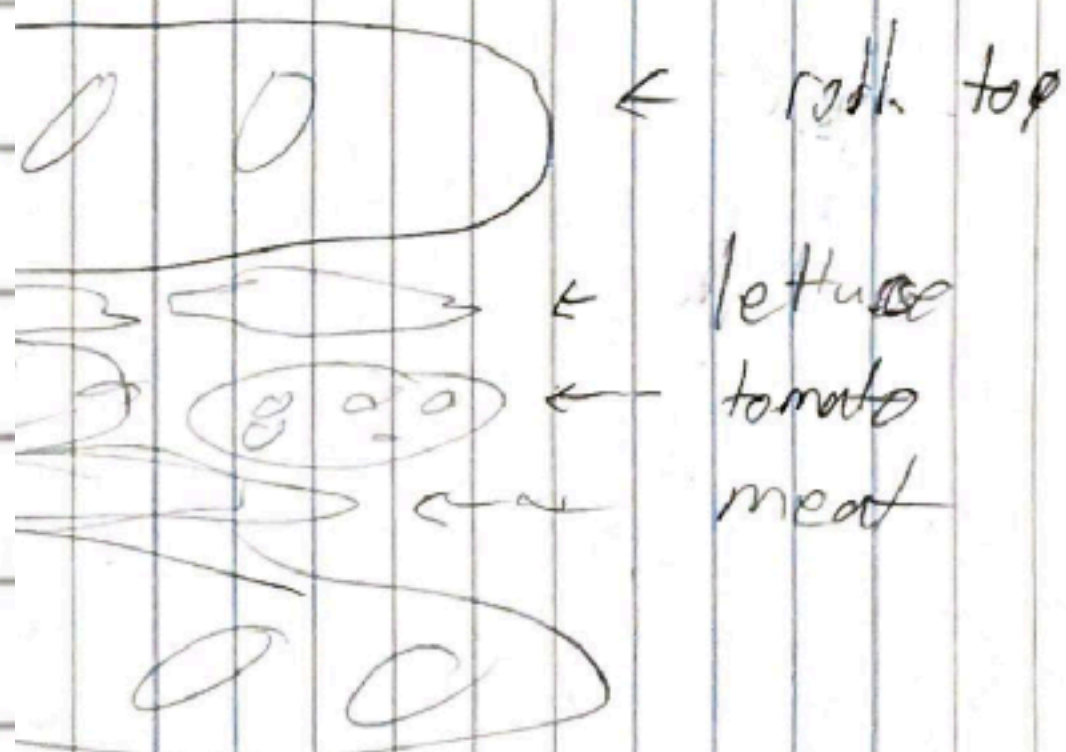 roll top
lettuce
tomato
meat